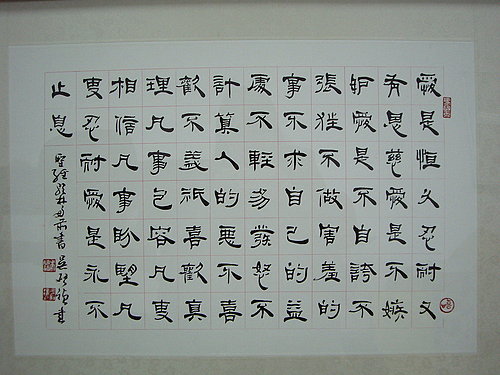 愛是恆久忍耐又
有恩慈愛是不嫉
妒愛是不自誇不
張狂不做害羞的
事不求自己的益
處不輕易發怒不
計算人的惡不喜
歡不義祇喜歡真
理凡事包容凡事
相信凡事盼望凡
事忍耐愛是永不
止息
聖經哥林多前書 吳